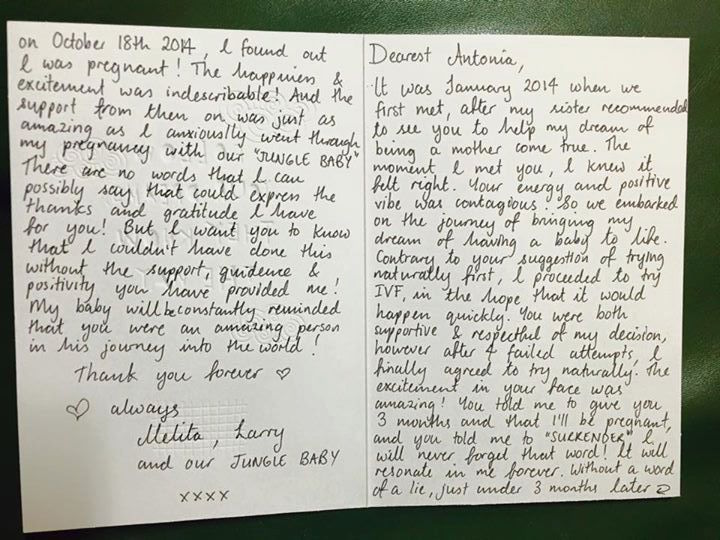 Dearest Antonia,
It was January 2014 when we
first met, after my sister recommended
to see you to help my dream of
being a mother come true. The
moment I met you, I knew it
felt right. Your energy and positive
vibe was contagious. So we embarked
on the journey of bringing my
dream of having a baby to life.
Contrary to your suggestion of trying
naturally first, I proceeded to try
IVF, in the hope that it would
happen quickly. You were both
supportive & respectful of my decision,
however after 4 failed attempts, I
finally agreed to try naturally. The
excitement in your face was
amazing! You told me to give you
3 months and that I'll be pregnant,
and you told me to "SURRENDER" I,
will never forget that word! It will
resonate in me forever. Without a word
of a lie, just under 3 months later
on October 18th 2014, I found out
I was pregnant! The happiness &
excitement was indescribable! And the
support from then on was just as
amazing as I anxiously went through
my pregnancy with our "JUNGLE BABY"
There are no words that I can
possibly say that could express the
thanks and gratitude I have
for you! But I want you to know
that I couldn't have done this
without the support, guidence &
positivity you have provided me!
My baby will be constantly reminded
that you were an amazing person
in his journey into the world!
Thank you forever ♡
♡ always
Melita, Larry
and our JUNGLE BABY
xxxx